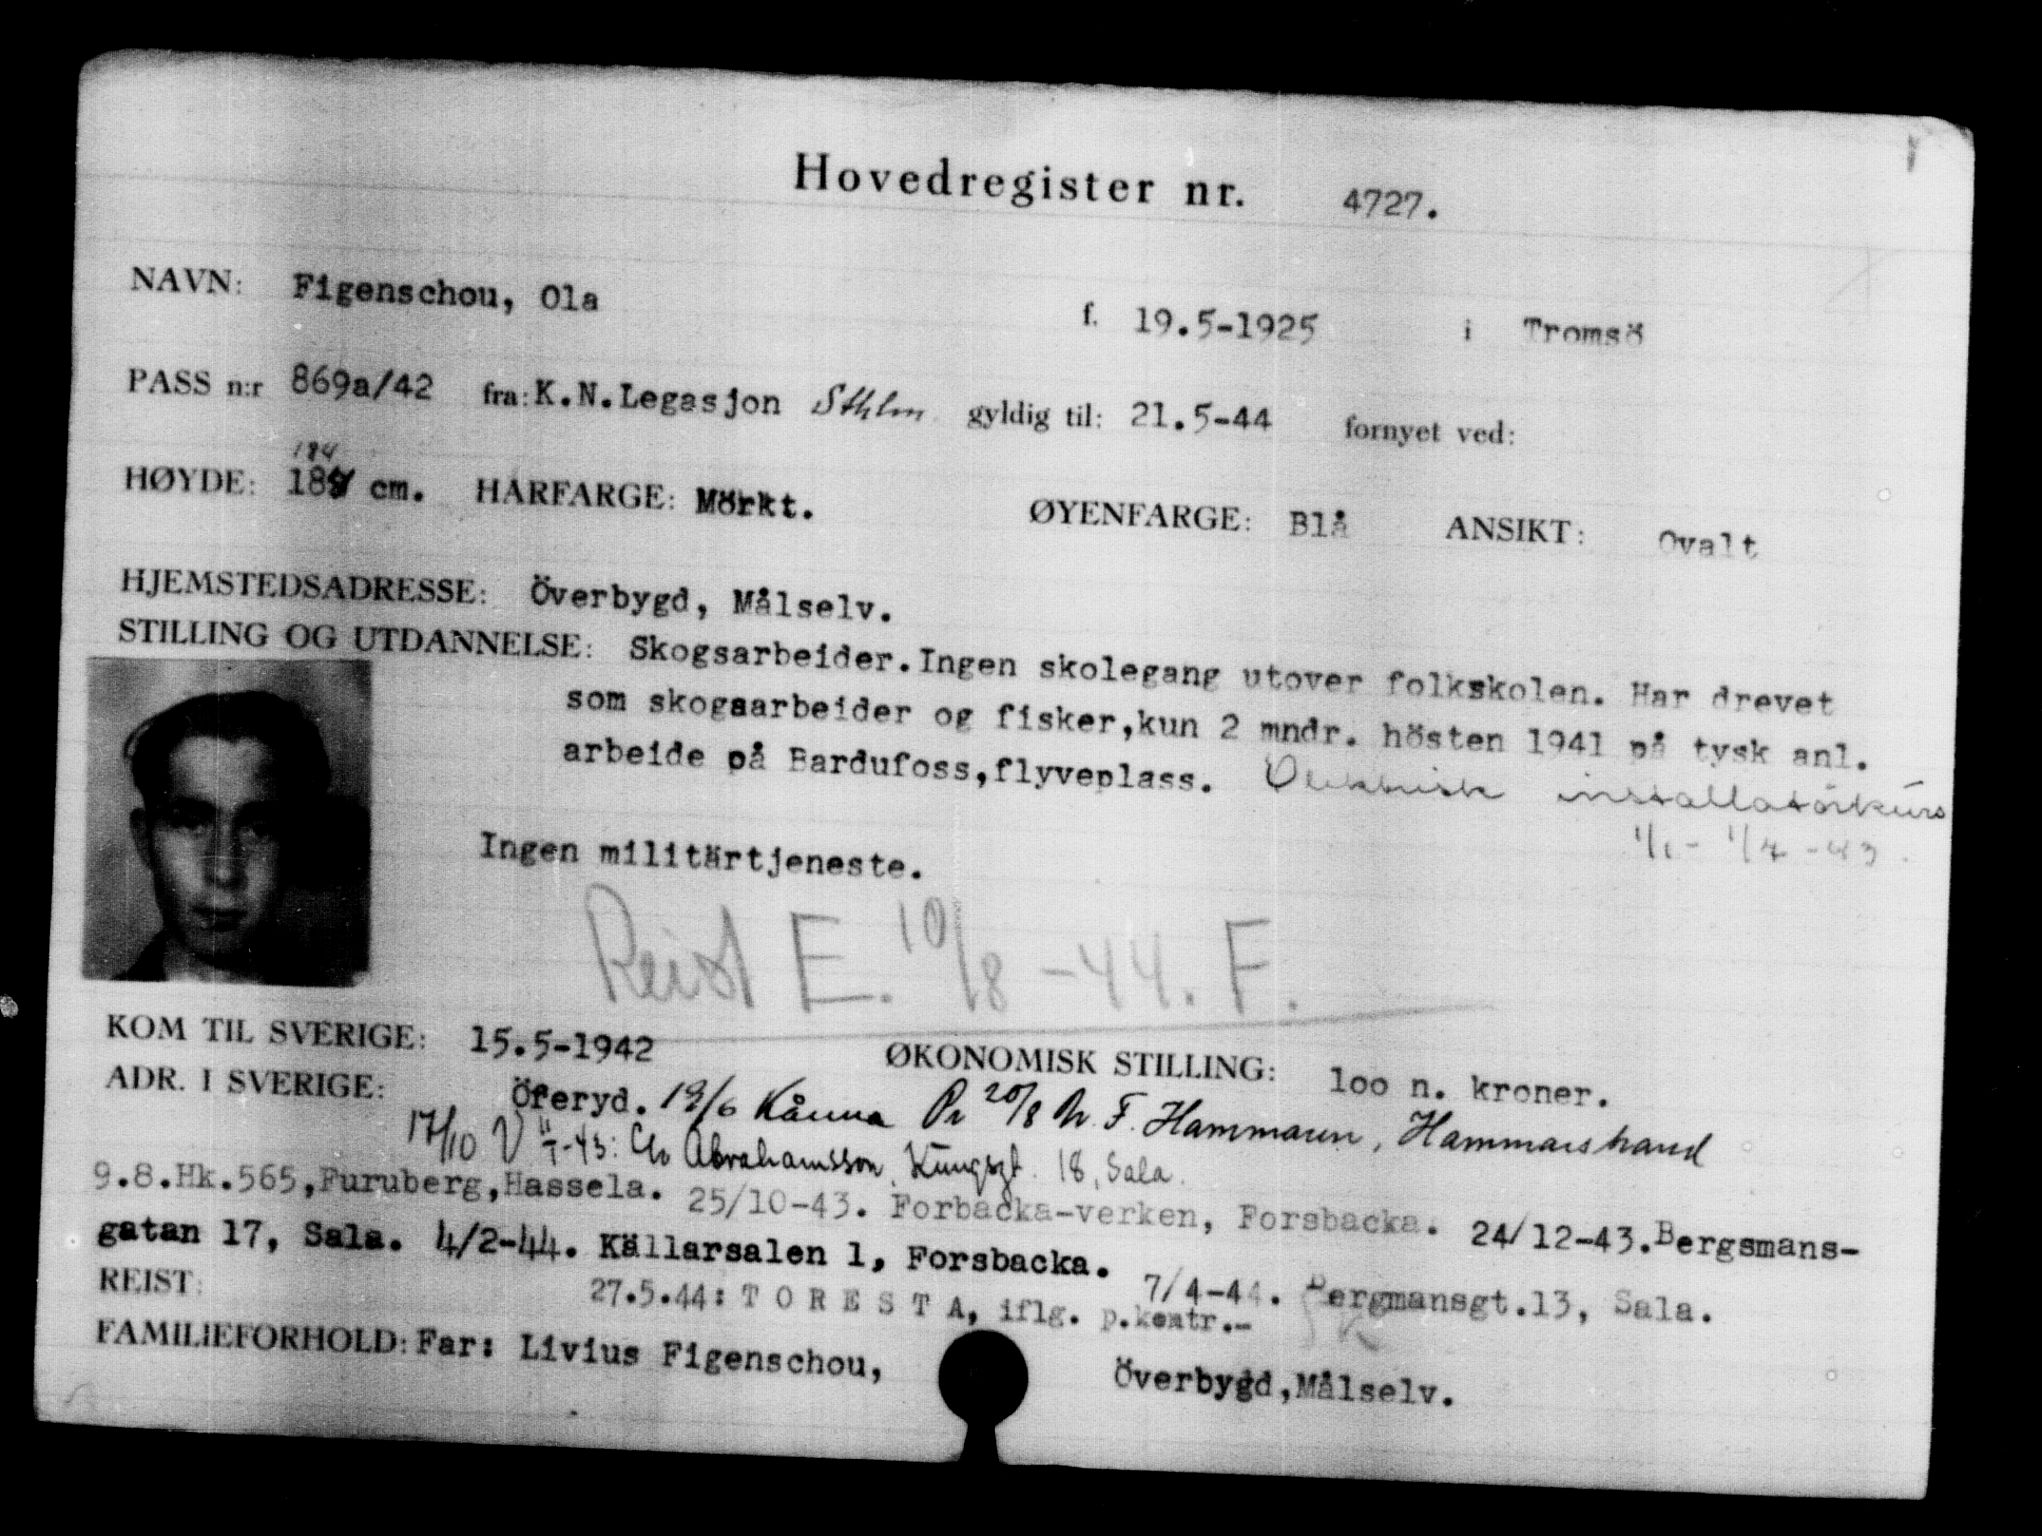 Hovedregister nr. 4727.
NAVN: Figenschou, Ola f. 19.5-1925 i Tromsö
PASS n:r 869a/42 fra: K.N.Legasjon Sthlm gyldig til: 21.5-44 fornyet ved:
184
HØYDE: 184 cm. HÅRFARGE: Mörkt. ØYENFARGE: Blå ANSIKT: Ovalt
HJEMSTEDSADRESSE: Överbygd, Målselv.
STILLING OG UTDANNELSE: Skogsarbeider. Ingen skolegang utover folkskolen. Har drevet
som skogsarbeider og fisker, kun 2 mndr. hösten 1941 på tysk anl.
arbeide på Bardufoss, flyveplass. Elektrisk installatörkurs
1/1 - 1/4 - 43.
Ingen militärtjeneste.
Reist E. 10/8 - 44. F.
KOM TIL SVERIGE: 15.5-1942 ØKONOMISK STILLING: 100 n. kroner.
ADR. I SVERIGE: Öreryd. 19/6 Kånna 20/8 F. Hammaren, Hammarstrand
17/10 43: C/o Abrahamsson, Kungsgt. 18, Sala.
9.8.Hk.565, Furuberg, Hassela. 25/10-43. Forbacka-verken, Forsbacka. 24/12-43. Bergsmans-
gatan 17, Sala. 4/2-44. Källarsalen 1, Forsbacka. 7/4-44. Bergmansgt.13, Sala.
REIST: 27.5.44: T O R E S T A, iflg. p.kontr.-
FAMILIEFORHOLD: Far: Livius Figenschou, Överbygd, Målselv.